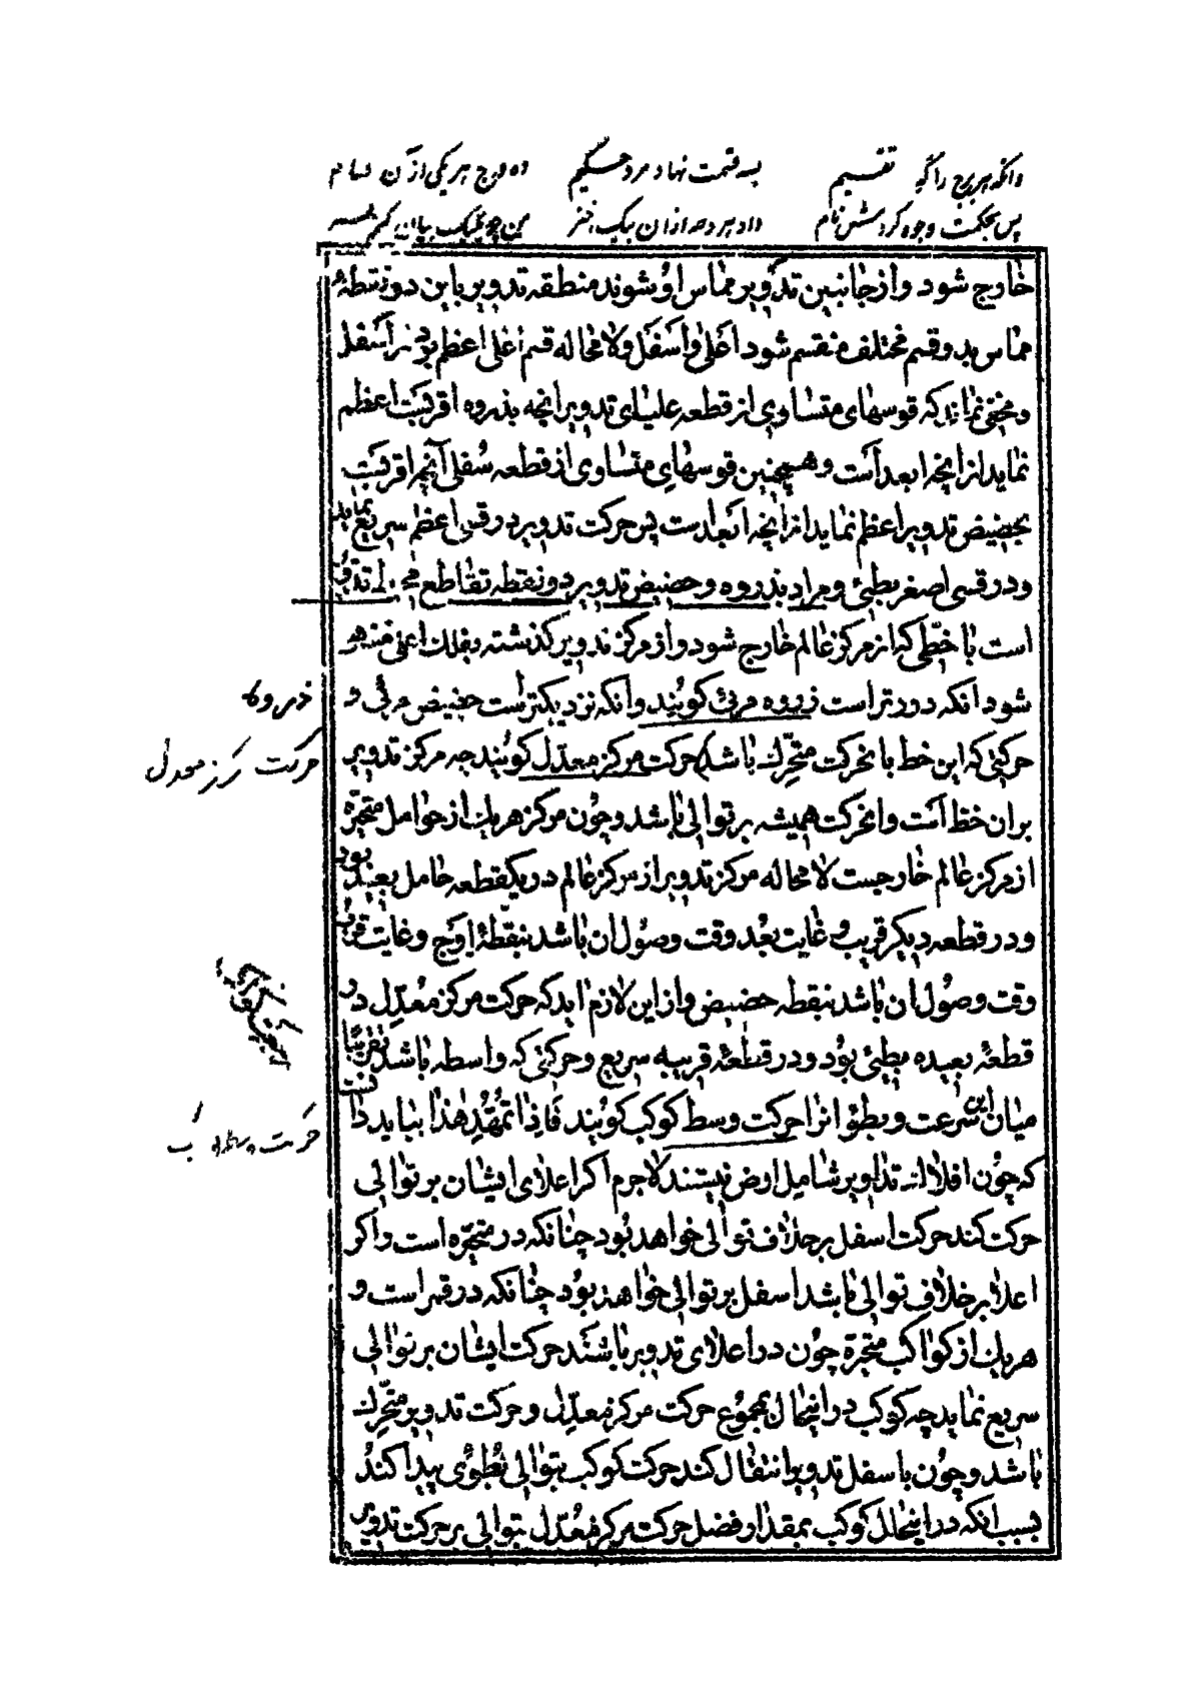 وانکه هر برج را که تقسیم
به قسمت نهاد مرد حکیم
ده وج هر یکی از آن تمام
پس بحکمت وجوه کردش نام
داد هر وجه ازان بیک اختر
خارج شود و از جانبین تدویر مماس او شوند منطقه تدویر باین دو نقطهٔ
مماس بدو قسم مختلف منقسم شود اعلی و اسفل و لا محاله قسم اعلی اعظم بود از اسفل
و مخفی نماند که قوسهای متساوی از قطعه علیای تدویر انچه بذروه اقربست اعظم
نماید از انچه ابعد است و همچنین قوسهای متساوی از قطعه سفلی آنچه اقربست
بحضیض تدویر اعظم نماید از انچه ابعد است پس حرکت تدویر در قسی اعظم سریع نماید
و در قسی اصغر بطیئ و مراد بذروه و حضیض تدویر دو نقطه تقاطع محیط تدویر
است با خطی که از مرکز عالم خارج شود و از مرکز تدویر کذشته بفلك اعلی منتهی
شود انکه دورتر است ذروه مرئی کویند و انکه نزدیکتر است حضیض مرئی و
حرکتی که این خط بانحرکت متحرك باشد حرکت مرکز معدل کویند چه مرکز تدویر
بران خط است و انحرکت همیشه بر توالی باشد و چون مرکز هر یك از حوامل متحیره
از مرکز عالم خارجست لا محاله مرکز تدویر از مرکز عالم در یکقطعه حامل بعید بود
و در قطعه دیکر قریب و غایت بعد وقت وصول ان باشد بنقطهٔ اوج و غایت قرب
وقت وصول ان باشد بنقطه حضیض و از این لازم اید که حرکت مرکز معدل در
قطعهٔ بعیده بطیئ بود و در قطعهٔ قریبه سریع و حرکتی که واسطه باشد تقریبا
میان این سرعت و بطؤ انرا حرکت وسط کوکب کویند فاذا تمهد هذا بباید دانست
که چون افلاك تداویر شامل ارض نیستند لا جرم اکر اعلای ایشان بر توالی
حرکت کند حرکت اسفل بر خلاف توالی خواهد بود چنانکه در متحیره است و اکر
اعلا بر خلاف توالی باشد اسفل بر توالی خواهد بود چنانکه در قمر است و
هر یك از کواکب متحیرة چون در اعلای تدویر باشند حرکت ایشان بر توالی
سریع نماید چه کوکب در اینحال بمجموع حرکت مرکز معدل و حرکت تدویر متحرك
باشد و چون باسفل تدویر انتقال کند حرکت کوکب بتوالی بطوئی پیدا کند
بسبب انکه در اینحال کوکب بمقدار فضل حرکت مرکز معدل بتوالی بر حرکت تدویر
ذروه
حرکت مرکز معدل
حرکت وسط کوکب